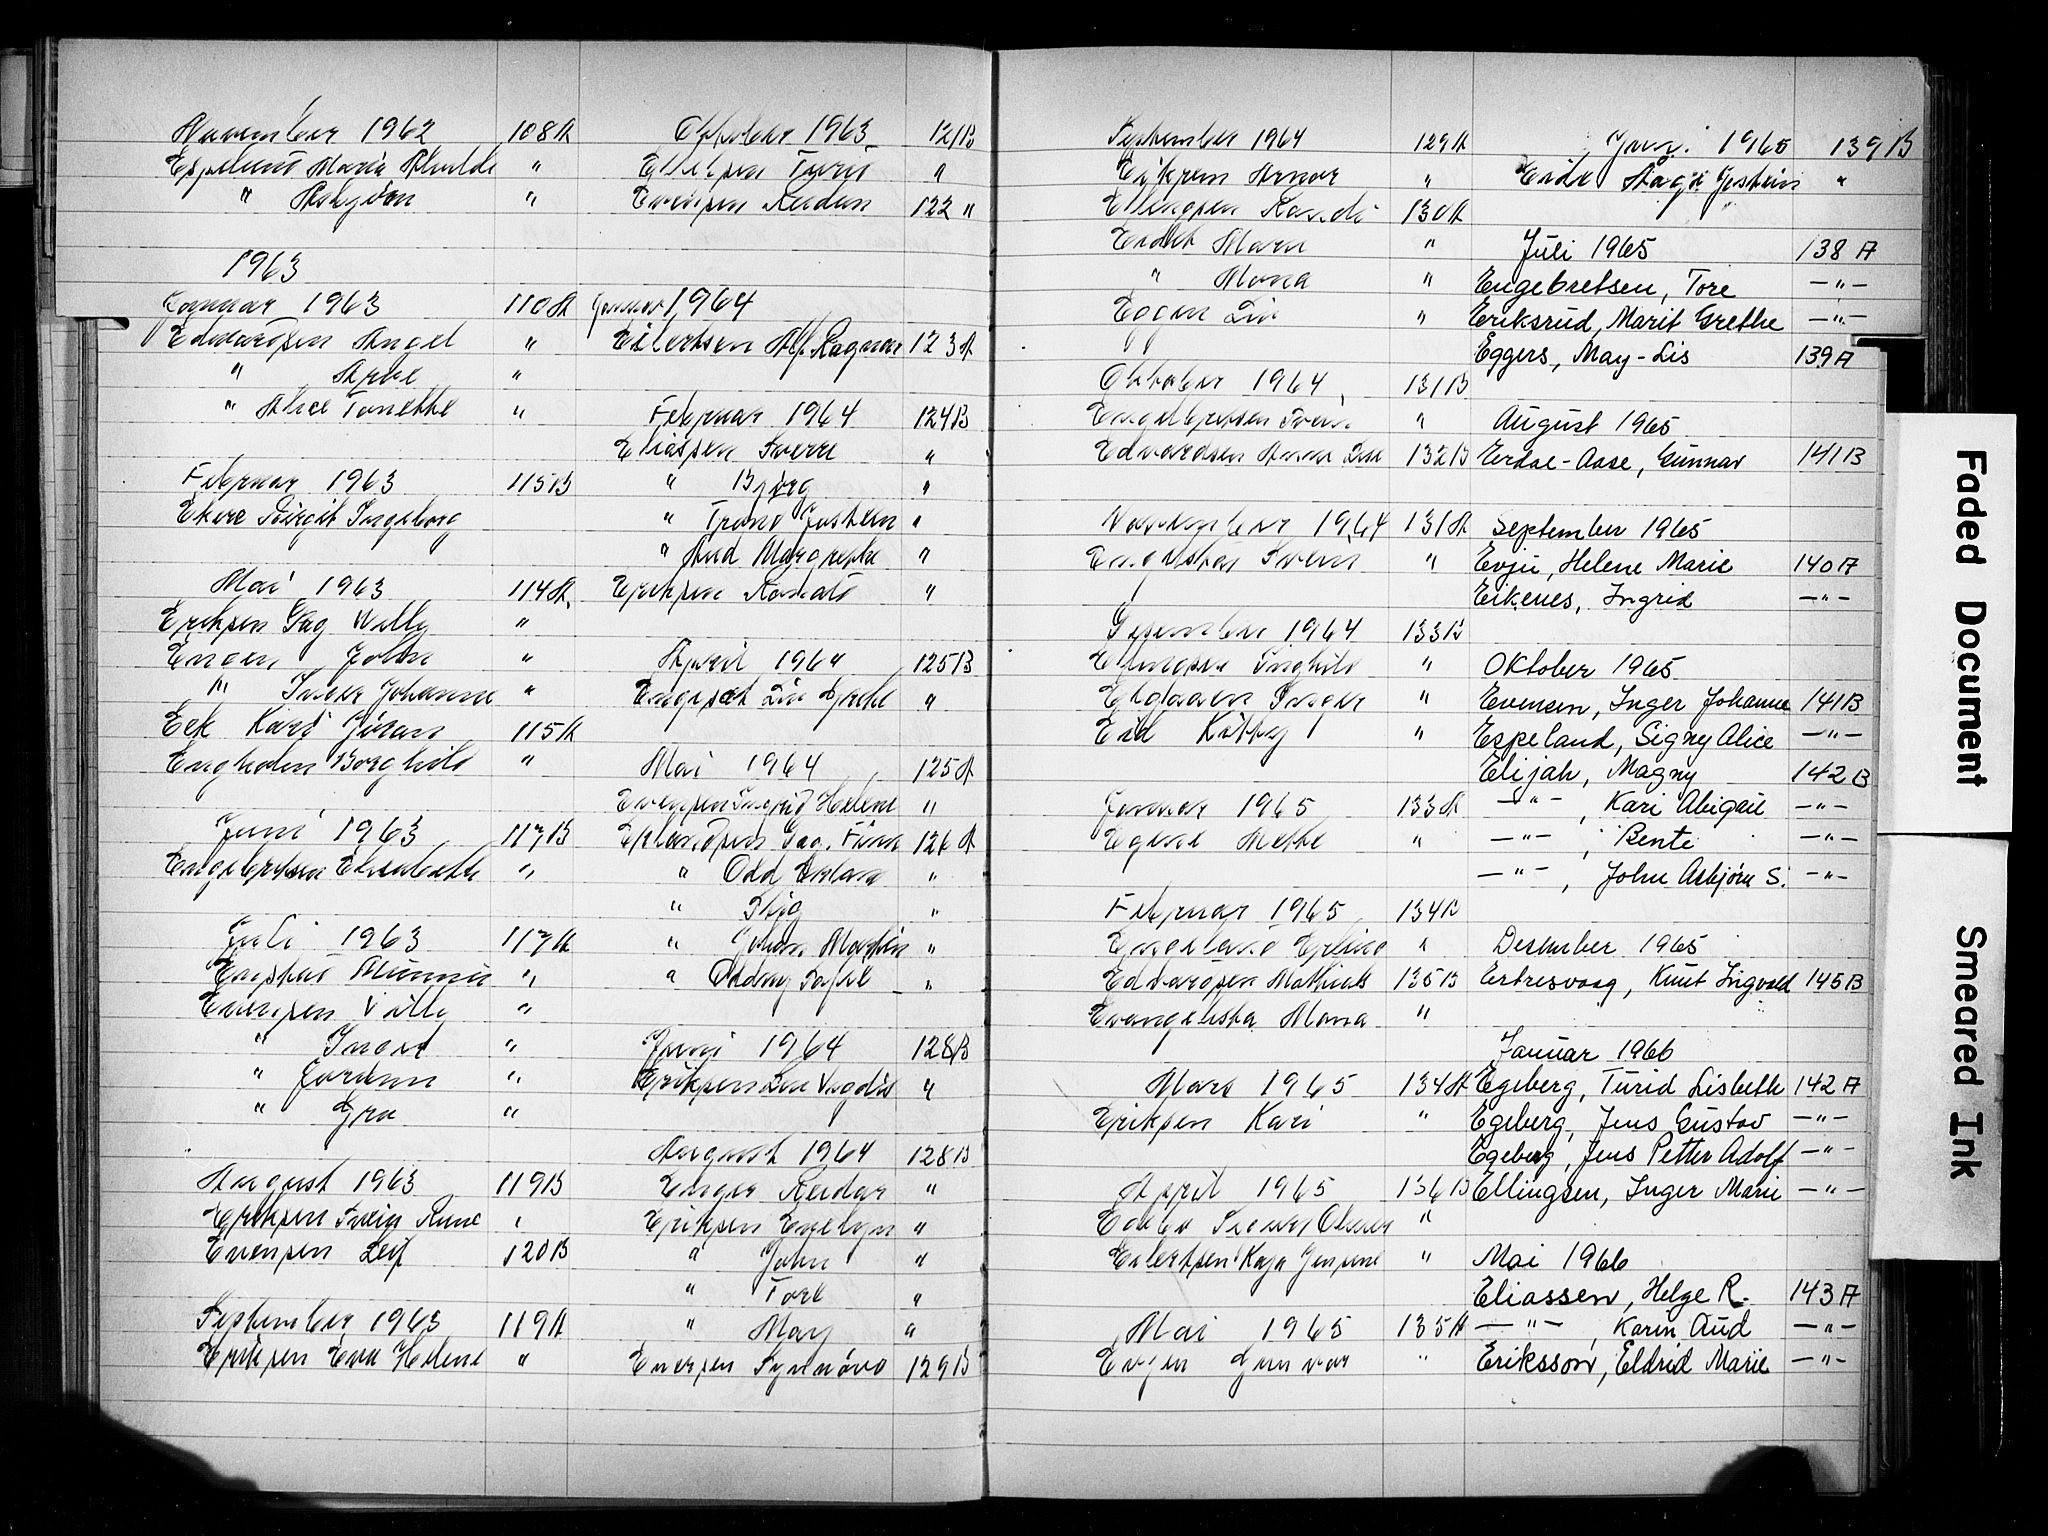 November 1962 108A
Espelund Maria Alvilde "
" Asbjørn "
1963
Januar 1963 110A
Edvardsen Angel "
" Arne "
" Alice Tonette "
Februar 1963 115B
Ekre Birgit Ingeborg
Mai 1963 114A.
Eriksen Dag Willy "
Engen John "
" Inger Johanne "
Eek Kari Jöran 115A
Engholm Borghild "
Juni 1963 117B
Engebretsen Elisabeth "
Juli 1963 117A
Engstad Munni "
Evensen Villy "
" Inger "
" Jorunn "
" Gro "
August 1963 119B
Eriksen Svein Rune "
Evensen Leif 120B
September 1963 119A
Eriksen Eva Helene "
Oktober 1963 121B
Ellefsen Turid "
Evensen Reidun 122 "
Januar 1964
Eilertsen Alf Ragnar 123A
Februar 1964 124B
Eliassen Sverre "
" Bjørg "
" Trond Jostein "
" Aud Margrethe "
Eriksen Konrad "
April 1964 125B
Engeset Liv Grethe "
Mai 1964 125A
Evensen Ingrid Helene "
Erlandsen Dag. Finn 126A
" Odd Erland "
" Stig "
" Johan Martin "
" Oddny Sofie "
Juni 1964 128B
Eriksen Lise Vigdis "
August 1964 128B
Enger Reidar "
Eriksen Evelyn "
" John "
" Tore "
" May "
Evensen Synnöve 129B
September 1964 129A
Eikrem Arnor "
Ellingsen Randi 130A
Eidet Maren "
" Mona "
Eggen Liv "
Oktober 1964 131B
Engebretsen Svein "
Edvardsen Anne Lise 132B
November 1964 131A
Engstad Svein "
Desember 1964 133B
Ellingsen Ranghild "
Eldøen Inger "
Eid Kitty "
Januar 1965 133A
Egene Mette "
Februar 1965 134B
Engeland Erling "
Edvardsen Mathias 135B
Evangelista Mona "
Mars 1965 134A
Eriksen Kari "
April 1965 136B
Eilertsen Kaja Jensine "
Mai 1965 135A
Evjen Gunvor "
Juni 1965 139B
Eide Aage Jostein "
Juli 1965 138A
Engebretsen, Tore —"—
Eriksrud, Marit Grethe —"—
Eggers, May-Lis 139A
August 1965
Eerdal-Aase, Gunnar 141B
September 1965
Evju, Helene Marie 140A
Eikenes, Ingrid —"—
Oktober 1965
Evensen, Inger Johanne 141B
Espeland, Signy Alice —"—
Elijah, Magny 142B
—"—, Kari Abigail —"—
—"—, Bente —"—
—"—, John Asbjørn S. —"—
Desember 1965
Ertresvaag, Knut Ingvald 145B
Januar 1966
Egeberg, Turid Lisbeth 142A
Egeberg, Jens Gustav —"—
Egeberg, Jens Petter Adolf —"—
Ellingsen, Inger Marie —"—
Mai 1966
Eliassen, Helge R. 143A
—"—, Karin Aud —"—
Eriksson, Eldrid Marie —"—
Faded Document
Smeared Ink